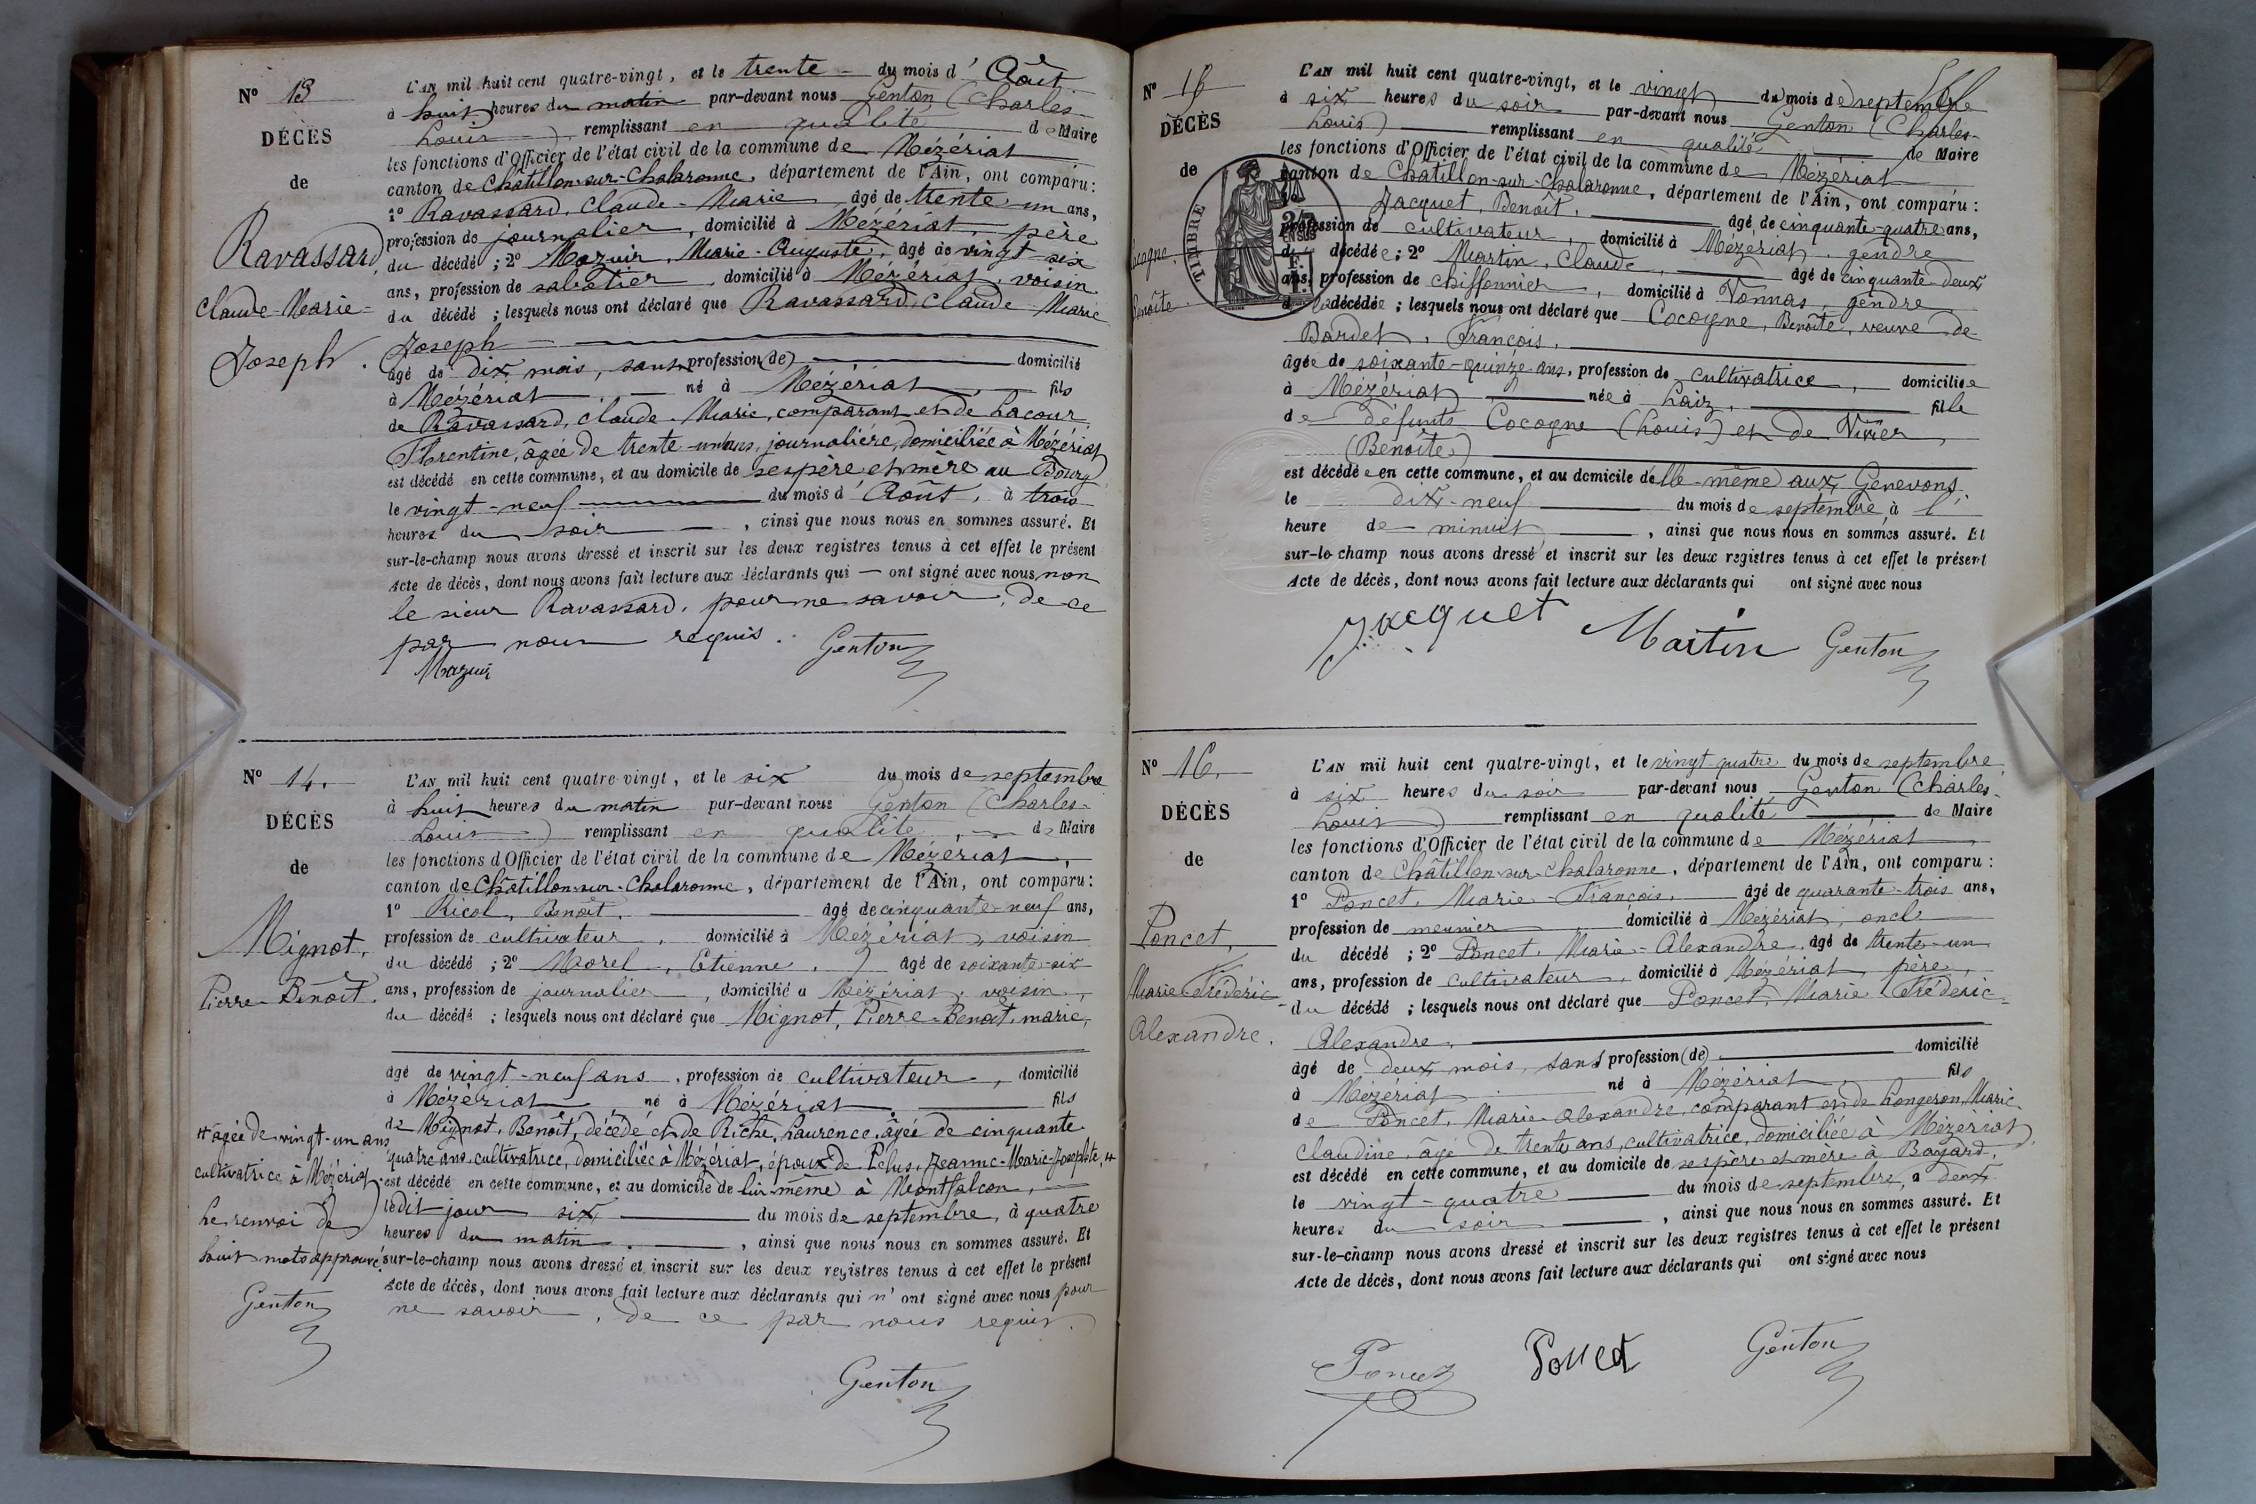 N° 13
DÉCÈS
de
Ravassard,
Claude-Marie-
Joseph.
L'AN mil huit cent quatre-vingt, et le trente du mois d'Août
à huit heures du matin par-devant nous Genton (Charles-
Louis) remplissant en qualité de Maire
les fonctions d'Officier de l'état civil de la commune de Mézériat
canton de Châtillon-sur-Chalaronne, département de l'Ain, ont comparu :
1° Ravassard, Claude-Marie âgé de trente-un ans,
profession de journalier, domicilié à Mézériat, père
du décédé ; 2° Mazuir, Marie-Auguste, âgé de vingt-six
ans, profession de sabotier, domicilié à Mézériat, voisin
du décédé ; lesquels nous ont déclaré que Ravassard, Claude-Marie
Joseph
âgé de dix mois, sans profession (de) domicilié
à Mézériat, né à Mézériat, fils
de Ravassard, Claude-Marie, comparant et de Lacour,
Florentine, âgée de trente-un ans, journalière, domiciliée à Mézériat
est décédé en cette commune, et au domicile de ses père et mère au Bourg
le vingt-neuf du mois d'Août, à trois
heures du soir, ainsi que nous nous en sommes assuré. Et
sur-le-champ nous avons dressé et inscrit sur les deux registres tenus à cet effet le présent
Acte de décès, dont nous avons fait lecture aux déclarants qui — ont signé avec nous, non
le sieur Ravassard, pour ne savoir, de ce
par nous requis.
Mazuir Genton
N° 14.
DÉCÈS
de
Mignot,
Pierre-Benoît.
L'AN mil huit cent quatre-vingt, et le six du mois de septembre
à huit heures du matin par-devant nous Genton (Charles-
Louis) remplissant en qualité, de Maire
les fonctions d'Officier de l'état civil de la commune de Mézériat,
canton de Châtillon-sur-Chalaronne, département de l'Ain, ont comparu :
1° Ricol, Benoît, âgé de cinquante-neuf ans,
profession de cultivateur, domicilié à Mézériat, voisin
du décédé ; 2° Morel, Etienne, âgé de soixante-six
ans, profession de journalier, domicilié à Mézériat, voisin,
du décédé ; lesquels nous ont déclaré que Mignot, Pierre-Benoît, marié,
âgé de vingt-neuf ans, profession de cultivateur, domicilié
à Mézériat né à Mézériat, fils
de Mignot, Benoît, décédé et de Riche, Laurence, âgée de cinquante
quatre ans, cultivatrice, domiciliée à Mézériat, époux de Pelus, Jeanne-Marie-Josephte, #
est décédé en cette commune, et au domicile de lui-même à Montfalcon,
ledit jour six du mois de septembre, à quatre
heures du matin, ainsi que nous nous en sommes assuré. Et
sur-le-champ nous avons dressé et inscrit sur les deux registres tenus à cet effet le présent
Acte de décès, dont nous avons fait lecture aux déclarants qui n'ont signé avec nous pour
ne savoir, de ce par nous requis.
Genton
# âgée de vingt-un ans
cultivatrice à Mézériat
Le renvoi de
huit mots approuvé
Genton
N° 15
DÉCÈS
de
Cocogne,
Benoîte.
TIMBRE
L'AN mil huit cent quatre-vingt, et le vingt du mois de septembre
à six heures du soir par-devant nous Genton (Charles-
Louis) remplissant en qualité de Maire
les fonctions d'Officier de l'état civil de la commune de Mézériat
canton de Châtillon-sur-Chalaronne, département de l'Ain, ont comparu :
Jacquet, Benoît, âgé de cinquante-quatre ans,
profession de cultivateur, domicilié à Mézériat, gendre
de décédée ; 2° Martin, Claude, âgé de cinquante-deux
ans, profession de chiffonnier, domicilié à Vonnas, gendre
de la décédée ; lesquels nous ont déclaré que Cocogne, Benoîte, veuve de
Bardet, François,
âgée de soixante-quinze ans, profession de cultivatrice, domiciliée
à Mézériat née à Laiz, fille
de défunts Cocogne (Louis) et de Vivier,
(Benoîte)
est décédée en cette commune, et au domicile d'elle-même aux Genevons,
le dix-neuf du mois de septembre, à l'
heure de minuit, ainsi que nous nous en sommes assuré. Et
sur-le champ nous avons dressé et inscrit sur les deux registres tenus à cet effet le présent
Acte de décès, dont nous avons fait lecture aux déclarants qui ont signé avec nous
Jacquet Martin Genton
N° 16.
DÉCÈS
de
Poncet,
Marie-Fréderic-
Alexandre.
L'AN mil huit cent quatre-vingt, et le vingt-quatre du mois de septembre
à six heures du soir par-devant nous Genton (Charles-
Louis) remplissant en qualité de Maire
les fonctions d'Officier de l'état civil de la commune de Mézériat
canton de Châtillon-sur-Chalaronne, département de l'Ain, ont comparu :
1° Poncet, Marie-François, âgé de quarante-trois ans,
profession de meunier domicilié à Mézériat, oncle
du décédé ; 2° Poncet, Marie-Alexandre, âgé de trente-un
ans, profession de cultivateur, domicilié à Mézériat, père,
du décédé ; lesquels nous ont déclaré que Poncet, Marie-Fréderic-
Alexandre,
âgé de deux mois, sans profession (de) domicilié
à Mézériat né à Mézériat fils
de Poncet, Marie-Alexandre, comparant et de Longeron, Marie
Claudine, âgé de trente ans, cultivatrice, domiciliée à Mézériat,
est décédé en cette commune, et au domicile de ses père et mère à Bayard,
le vingt-quatre du mois de septembre, à deux
heures du soir, ainsi que nous nous en sommes assuré. Et
sur-le-champ nous avons dressé et inscrit sur les deux registres tenus à cet effet le présent
Acte de décès, dont nous avons fait lecture aux déclarants qui ont signé avec nous
Poncet Poncet Genton